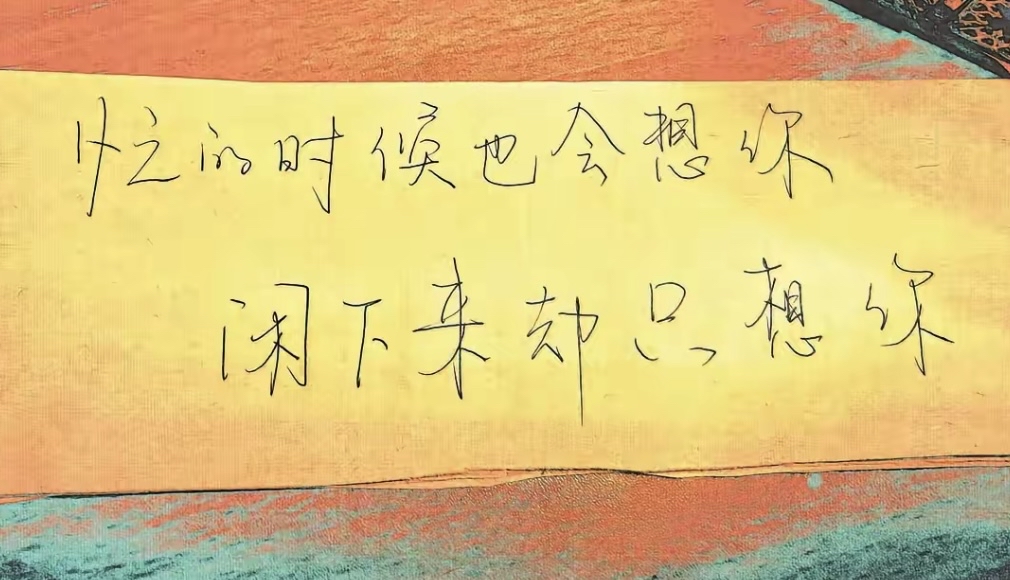 忙的时候也会想你
闲下来却只想你